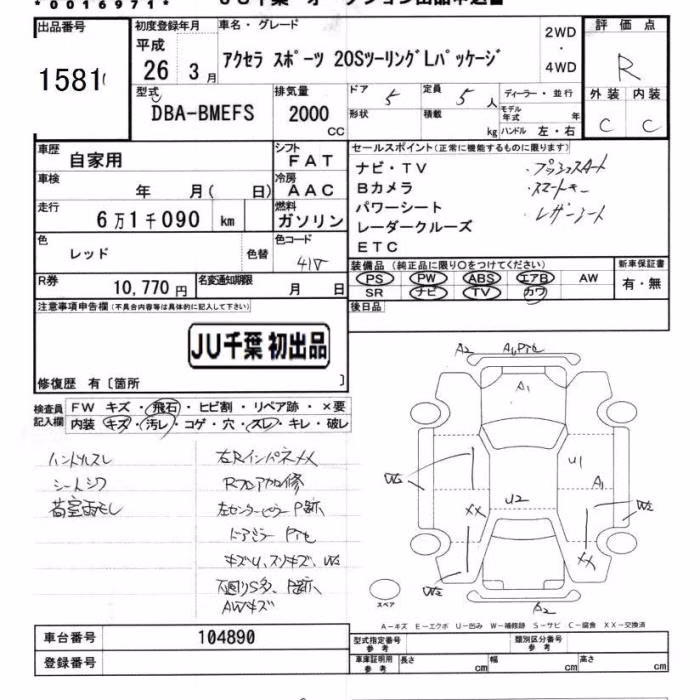 *0016971*
出品番号
1581
初度登録年月
平成
26 3月
車名・グレード
アクセラ スポーツ 20Sツーリング Lパッケージ
2WD
・
4WD
評価点
R
外装 内装
C C
型式
DBA-BMEFS
排気量
2000
cc
ドア 5
形状
定員 5人
積載 kg
ディーラー・並行
モデル年式 年
ハンドル 左・右
車歴
自家用
シフト
FAT
車検
年 月( 日)
冷房
AAC
走行
6万1千090 km
燃料
ガソリン
色
レッド
色替
カラーコード
41V
R券
10,770円
名変通知期限
月 日
セールスポイント(正常に機能するものに限ります)
ナビ・TV
Bカメラ
パワーシート
レーダークルーズ
ETC
・プッシュスタート
・スマートキー
・レザーシート
装備品(純正品に限り○をつけてください)
PS PW ABS エアB AW
SR ナビ TV カワ
新車保証書
有・無
後日品
注意事項申告欄(不具合内容等は具体的に記入して下さい)
JU千葉 初出品
修復歴 有〔箇所 〕
検査員記入欄
FW キズ・飛石・ヒビ割・リペア跡・×要
内装 キズ・汚レ・コゲ・穴・スレ・キレ・破レ
ハンドルスレ
シートシワ
荷室
右Rインパネ××
Rフロア加修
左センターピラー
ドアミラー
キズU、スリキズ、W2
下廻りS多、
AWキズ
A2
A1
A1
U1
A1
W2
W2
U2
XX
XX
W2
A2
スペア
A-キズ E-エクボ U-凹み W-補修跡 S-サビ C-腐食 XX-交換済
車台番号
104890
登録番号
型式指定番号
参考
類別区分番号
参考
車庫証明用
参考
長さ cm
幅 cm
高さ cm